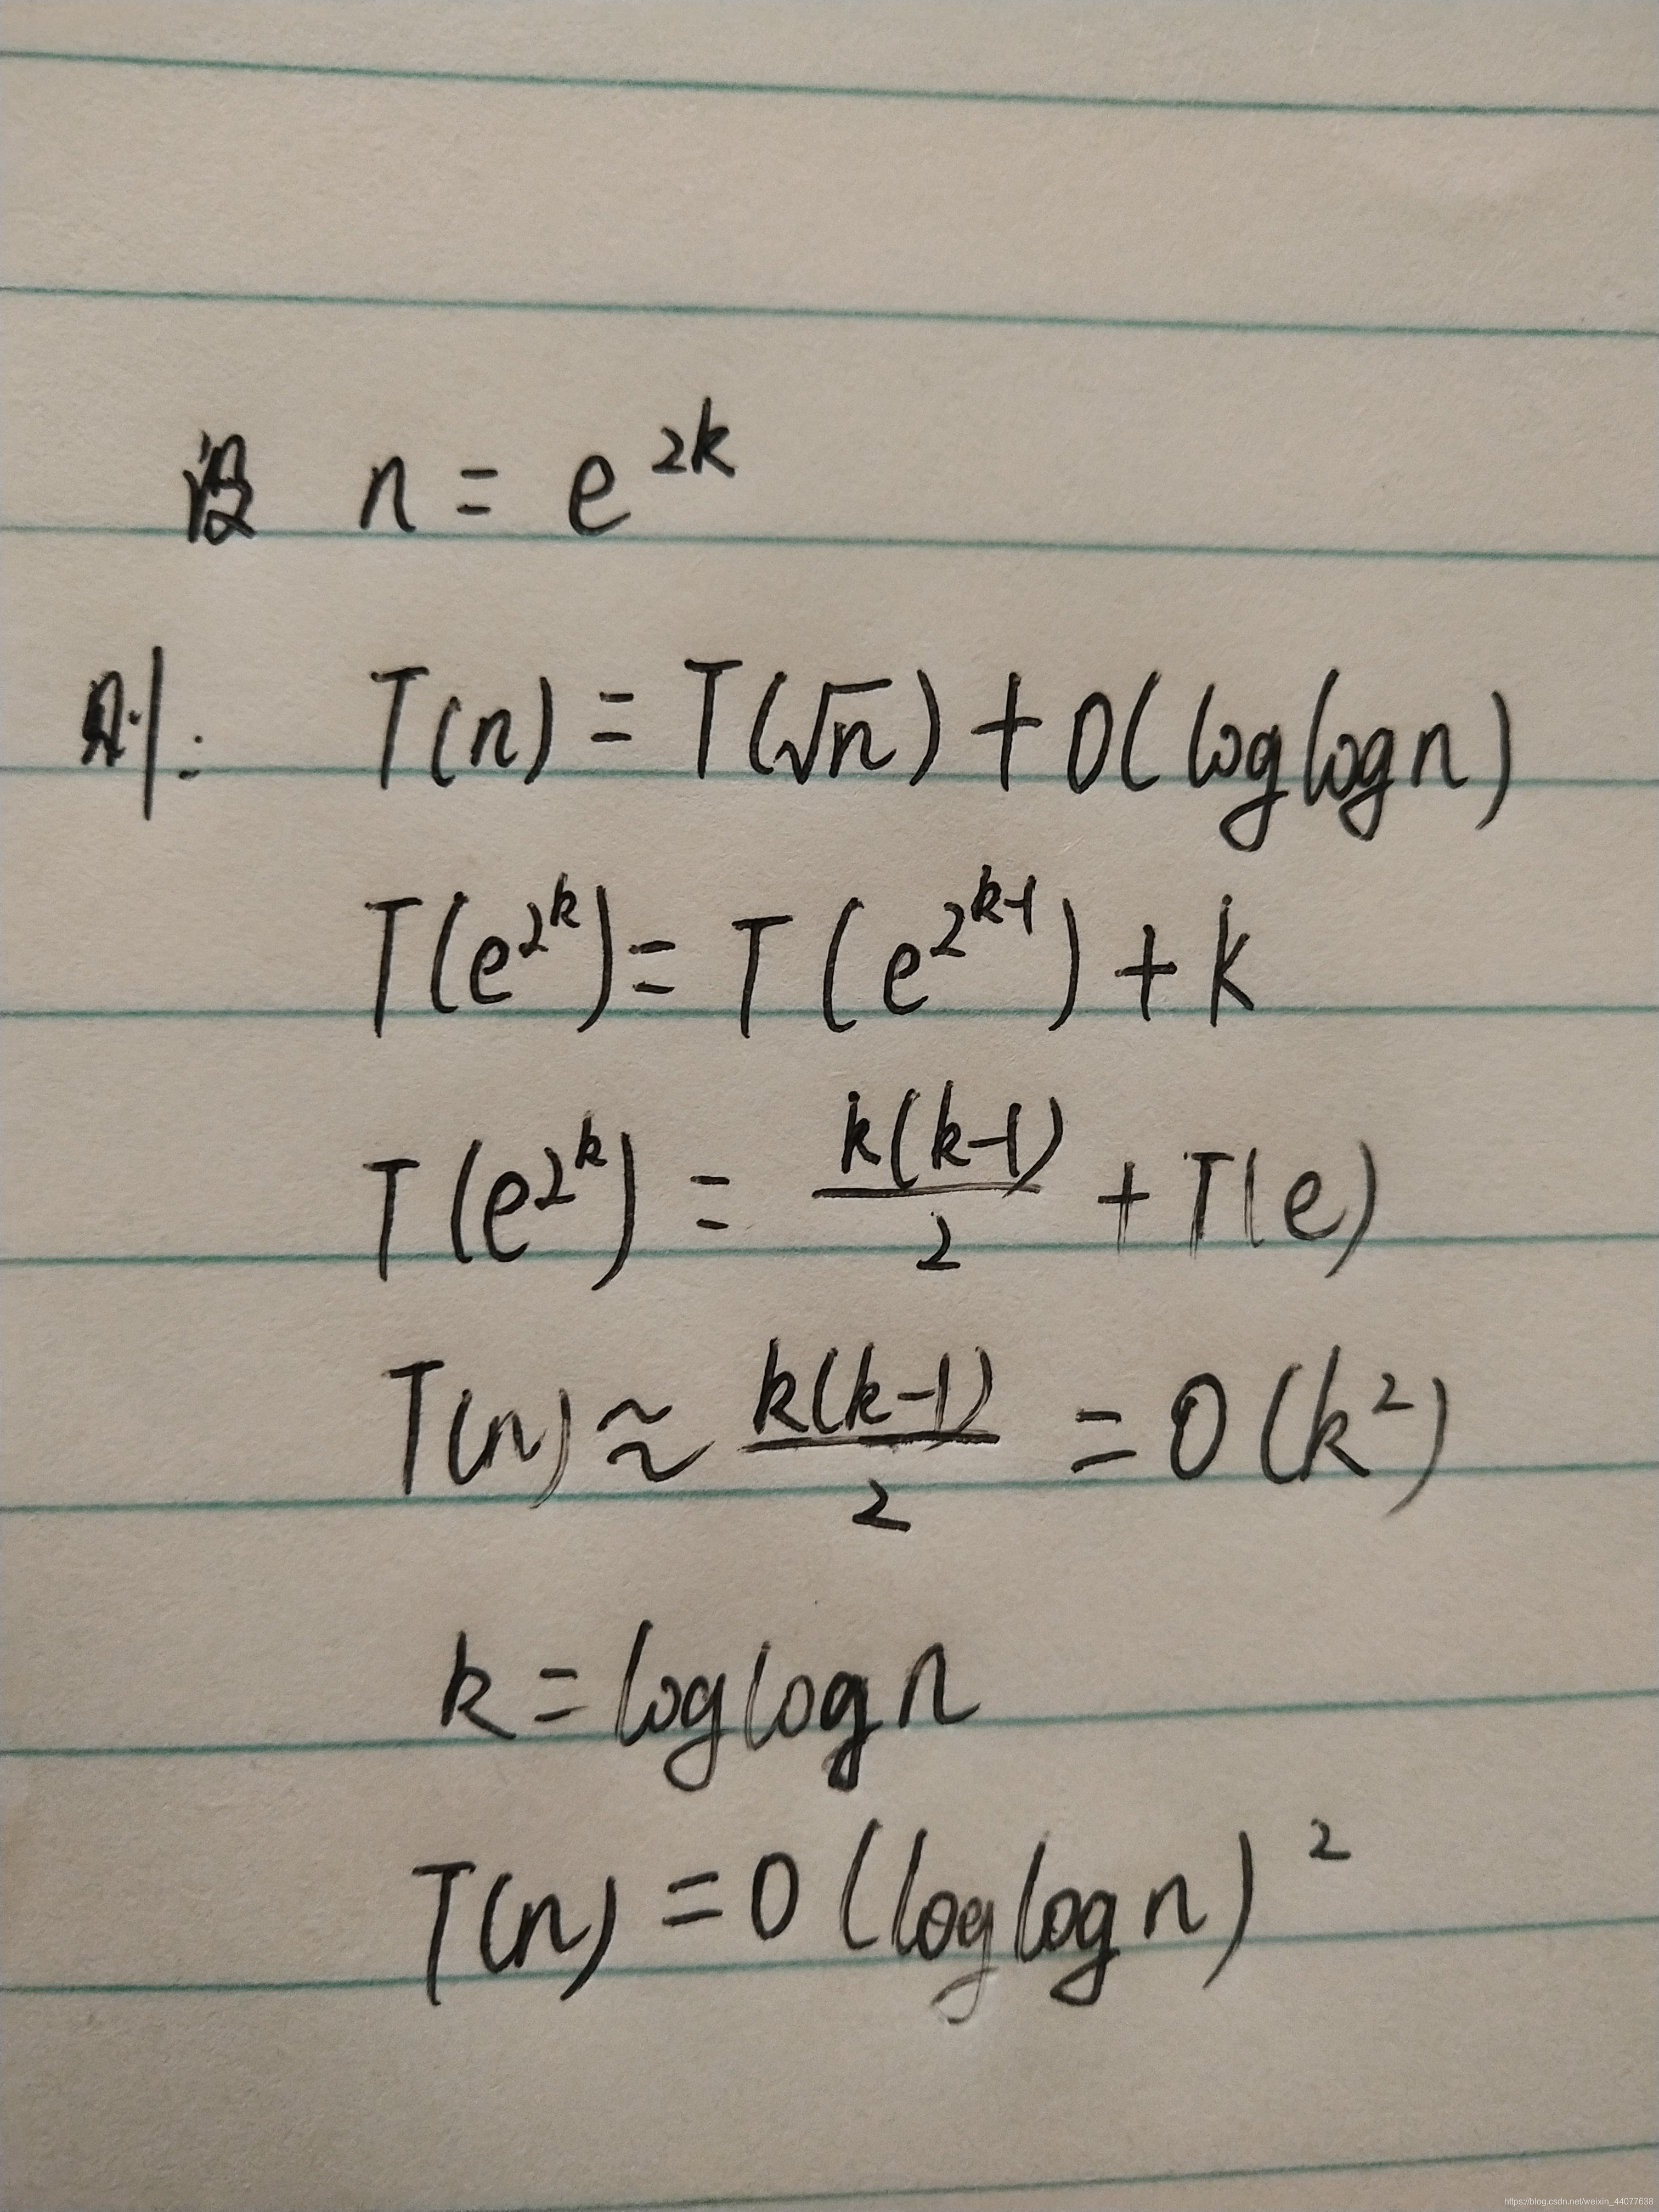 设 n = e^{2k}
则: T(n) = T(√n) + O(log log n)
T(e^{2^k}) = T(e^{2^{k-1}}) + k
T(e^{2^k}) = \frac{k(k-1)}{2} + T(e)
T(n) ≈ \frac{k(k-1)}{2} = O(k^2)
k = log log n
T(n) = O(log log n)^2
https://blog.csdn.net/weixin_44077638